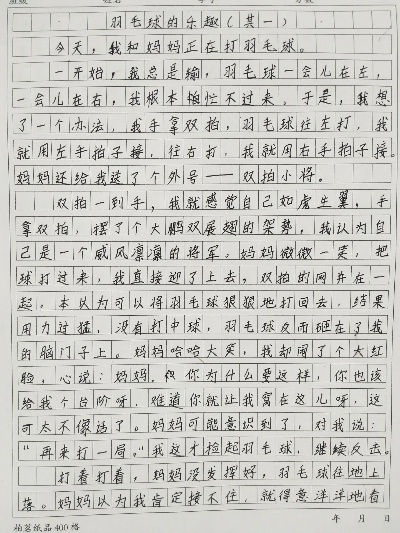 羽毛球的乐趣(其一)
今天,我和妈妈正在打羽毛球。
一开始,我总是输,羽毛球一会儿在左,
一会儿在右,我根本忙不过来。于是,我想
了一个办法,我手拿双拍,羽毛球往左打,我
就用左手拍子接,往右打,我就用右手拍子接。
妈妈还给我送了个外号——双拍小将。
双拍一到手,我就感觉自己如虎生翼,手
拿双拍,摆了个大鹏双展翅的架势,我认为自
己是一个威风凛凛的将军,妈妈微微一笑,把
球打过来,我直接迎了上去,双拍的网并在一
起,本以为可以将羽毛球狠狠地打回去,结果
用力过猛,没有打中球,羽毛球反而砸在了我
的脑门子上。妈妈哈哈大笑,我却闹了个大红
脸,心说:妈妈,你为什么要这样,你也该
给我个台阶呀,难道你就让我窝在这儿呀,这
可太不像话了。妈妈可能意识到了,对我说:
“再来打一局。”我这才捡起羽毛球,继续反击。
打着打着,妈妈没发挥好,羽毛球往地上
落。妈妈以为我肯定接不住,就得意洋洋地看
年 月 日
纸品400格